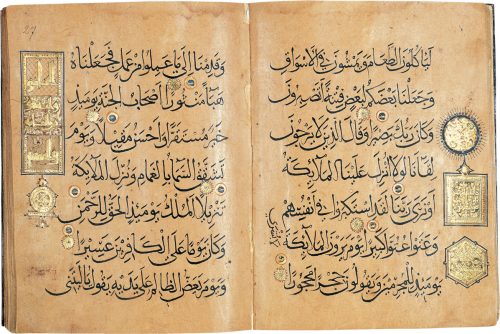 لَيَأْكُلُونَ الطَّعَامَ وَيَمْشُونَ فِي الْأَسْوَاقِ
وَجَعَلْنَا بَعْضَكُمْ لِبَعْضٍ فِتْنَةً أَتَصْبِرُونَ
وَكَانَ رَبُّكَ بَصِيرًا وَقَالَ الَّذِينَ لَا يَرْجُونَ
لِقَانَا لَوْلَا أُنْزِلَ عَلَيْنَا الْمَلَائِكَةُ
أَوْ نَرَى رَبَّنَا لَقَدِ اسْتَكْبَرُوا فِي أَنْفُسِهِمْ
وَعَتَوْا عُتُوًّا كَبِيرًا يَوْمَ يَرَوْنَ الْمَلَائِكَةَ
يَوْمَئِذٍ لِلْمُجْرِمِينَ وَيَقُولُونَ حِجْرًا مَحْجُورًا
27
وَقَدِمْنَا إِلَى مَا عَمِلُوا مِنْ عَمَلٍ فَجَعَلْنَاهُ
هَبَاءً مَنْثُورًا أَصْحَابُ الْجَنَّةِ يَوْمَئِذٍ
خَيْرٌ مُسْتَقَرًّا وَأَحْسَنُ مَقِيلًا وَيَوْمَ
تَشَقَّقُ السَّمَاءُ بِالْغَمَامِ وَنُزِّلَ الْمَلَائِكَةُ
تَنْزِيلًا الْمُلْكُ يَوْمَئِذٍ الْحَقُّ لِلرَّحْمَنِ
وَكَانَ يَوْمًا عَلَى الْكَافِرِينَ عَسِيرًا
وَيَوْمَ يَعَضُّ الظَّالِمُ عَلَى يَدَيْهِ يَقُولُ يَا لَيْتَنِي